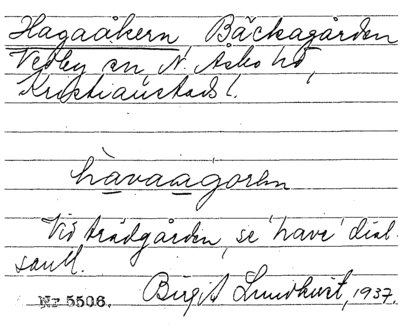 Hagaåkern, Bäckagården
Vedby sn, N. Åsbo hd,
Kristianstads l.
havaagoren
Vid trädgården, se 'have' dial.
saml.
Nr 5506. Birgit Lundkvist, 1937.